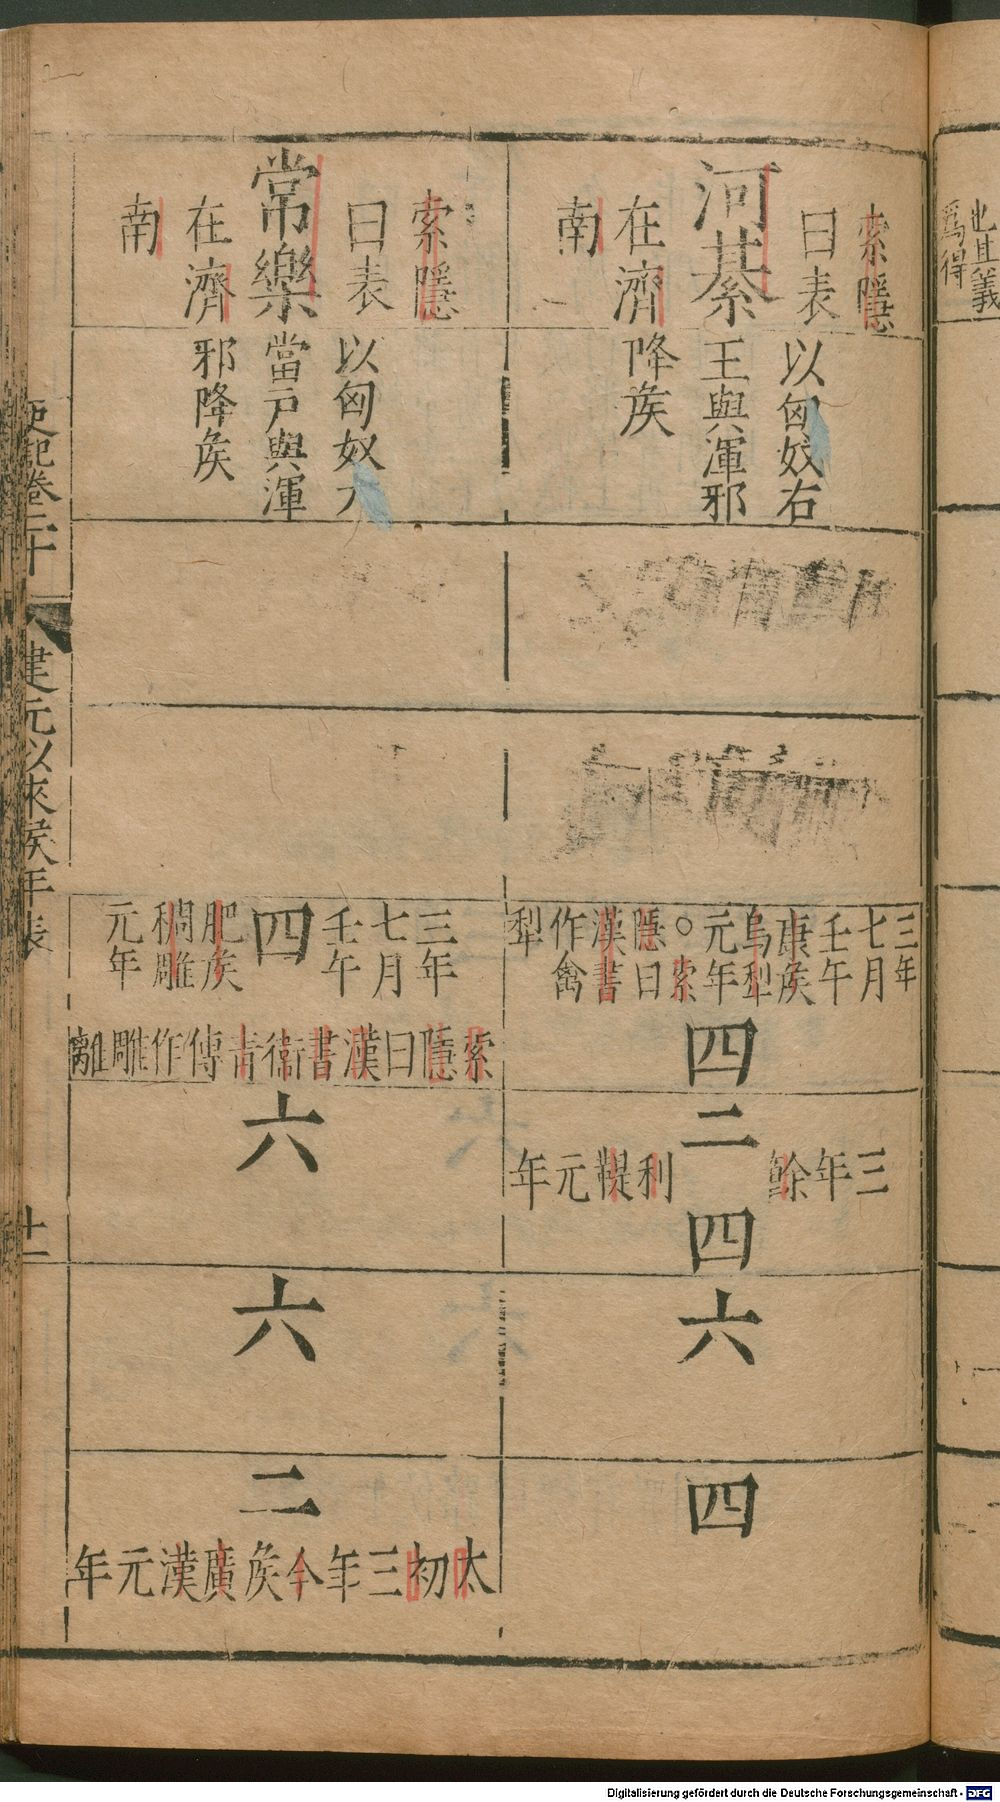 也且義
爲得
索隱
曰表
河綦
在濟
南
以匈奴右
王與渾邪
降矦
三年
七月
壬午
康矦
烏犁
元年
○索
隱曰
漢書
作禽
犁
四
二
三年餘
利鞮元年
四
六
四
索隱
曰表
常樂
在濟
南
以匈奴大
當戶與渾
邪降矦
三年
七月
壬午
四
肥矦
稠雕
元年
索隱曰漢書衛青傳作雕離
六
六
二
太初三年今矦廣漢元年
史記卷二十
建元以來矦年表
十一
Digitalisierung gefördert durch die Deutsche Forschungsgemeinschaft - DFG